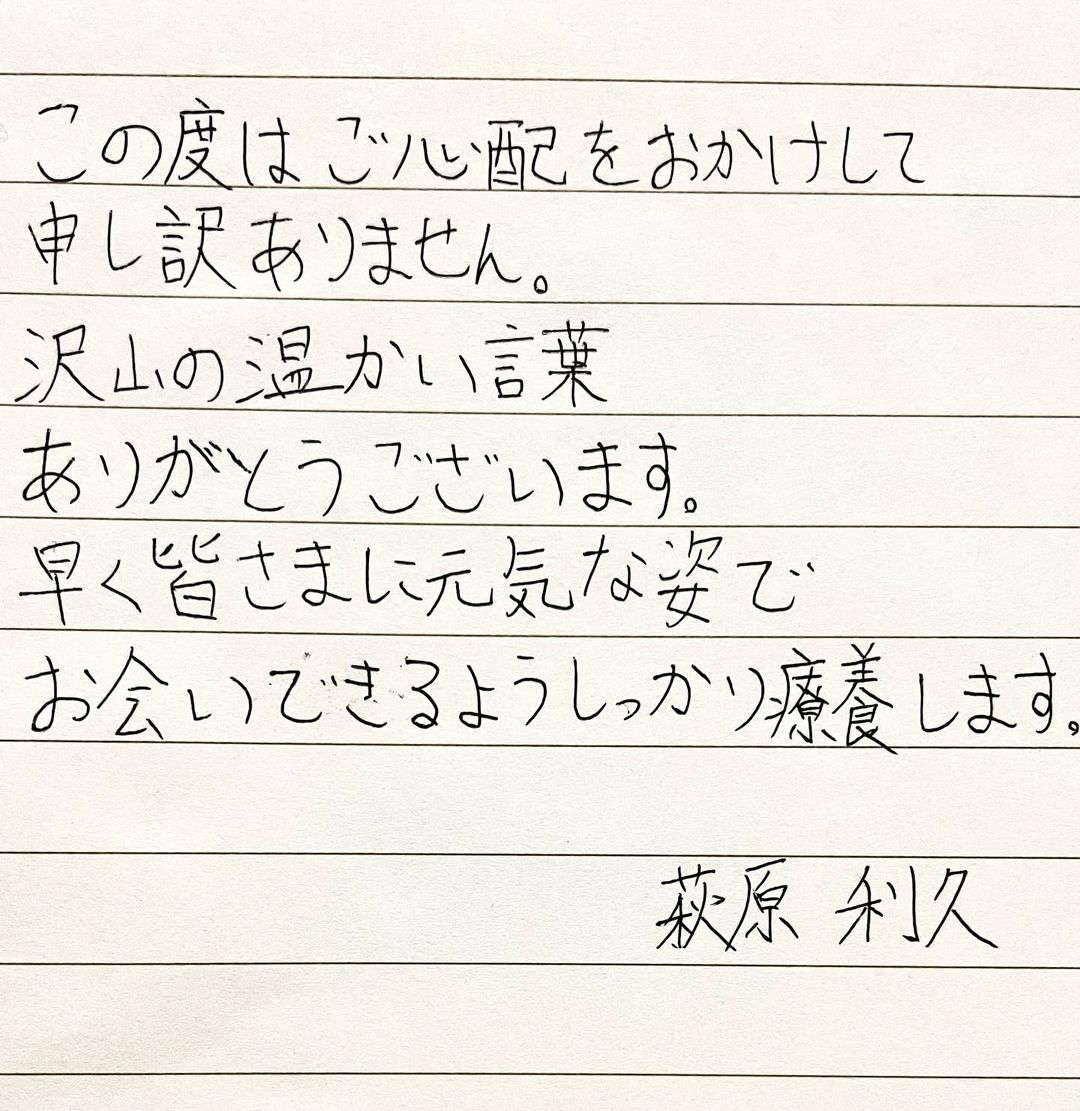 この度はご心配をおかけして
申し訳ありません。
沢山の温かい言葉
ありがとうございます。
早く皆さまに元気な姿で
お会いできるようしっかり療養します。
萩原 利久